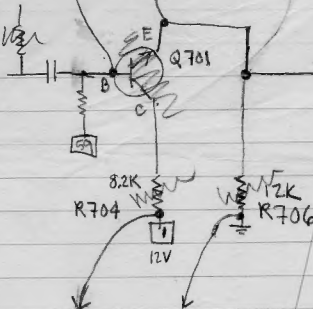 E
Q701
B
C
59
8.2K
R704
12V
2K
R706